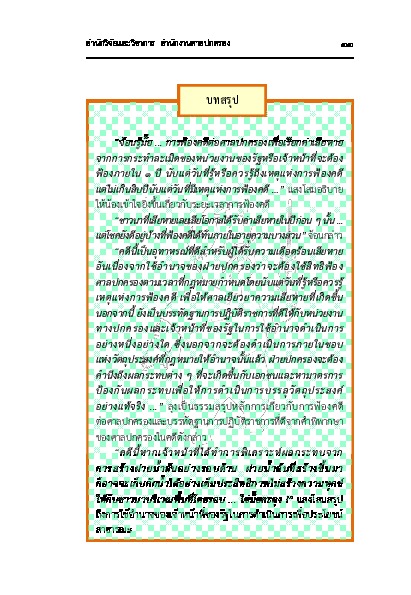 สำนักวิจัยและวิชาการ สำนักงานศาลปกครอง
บทสรุป
"จ้อนรู้มั้ย ... การฟ้องคดีต่อศาลปกครองเพื่อเรียกค่าเสียหาย
จากการกระทำละเมิดของหน่วยงานของรัฐหรือเจ้าหน้าที่จะต้อง
ฟ้องภายใน ๑ ปี นับแต่วันที่รู้หรือควรรู้ถึงเหตุแห่งการฟ้องคดี
แต่ไม่เกินสิบปีนับแต่วันที่มีเหตุแห่งการฟ้องคดี ..." แสงโสมอธิบาย
ให้น้องเข้าใจยิ่งขึ้นเกี่ยวกับระยะเวลาการฟ้องคดี
"ชาวนาที่เสียหายเลยเสียโอกาสได้รับค่าเสียหายในปีก่อน ๆ นั้น ...
แต่โชคยังดีอยู่บ้างที่ฟ้องคดีได้ทันภายในอายุความบางส่วน" จ้อนกล่าว
"คดีนี้เป็นอุทาหรณ์ที่ดีสำหรับผู้ได้รับความเดือดร้อนเสียหาย
อันเนื่องจากใช้อำนาจของฝ่ายปกครองว่าจะต้องใช้สิทธิฟ้อง
ศาลปกครองตามเวลาที่กฎหมายกำหนดโดยนับแต่วันที่รู้หรือควรรู้
เหตุแห่งการฟ้องคดี เพื่อให้ศาลเยียวยาความเสียหายที่เกิดขึ้น
นอกจากนี้ ยังเป็นบรรทัดฐานการปฏิบัติราชการที่ดีให้กับหน่วยงาน
ทางปกครองและเจ้าหน้าที่ของรัฐในการใช้อำนาจดำเนินการ
อย่างหนึ่งอย่างใด ซึ่งนอกจากจะต้องดำเนินการภายในขอบ
แห่งวัตถุประสงค์ที่กฎหมายให้อำนาจนั้นแล้ว ฝ่ายปกครองจะต้อง
คำนึงถึงผลกระทบต่าง ๆ ที่จะเกิดขึ้นกับเอกชนและหามาตรการ
ป้องกันผลกระทบเพื่อให้การดำเนินการบรรลุวัตถุประสงค์
อย่างแท้จริง ..." ลุงเป็นธรรมสรุปหลักการเกี่ยวกับการฟ้องคดี
ต่อศาลปกครองและบรรทัดฐานการปฏิบัติราชการที่ดีจากคำพิพากษา
ของศาลปกครองในคดีดังกล่าว
"คดีนี้หากเจ้าหน้าที่ได้ทำการวิเคราะห์ผลกระทบจาก
การสร้างฝายน้ำล้นอย่างรอบด้าน ฝายน้ำล้นที่สร้างขึ้นมา
ก็อาจจะเก็บกักน้ำได้อย่างเต็มประสิทธิภาพไม่สร้างความทุกข์
ให้กับชาวนาบริเวณพื้นที่โดยรอบ ...
ถึงการใช้อำนาจของเจ้าหน้าที่ของรัฐในการดำเนินการเพื่อประโยชน์
สาธารณะ